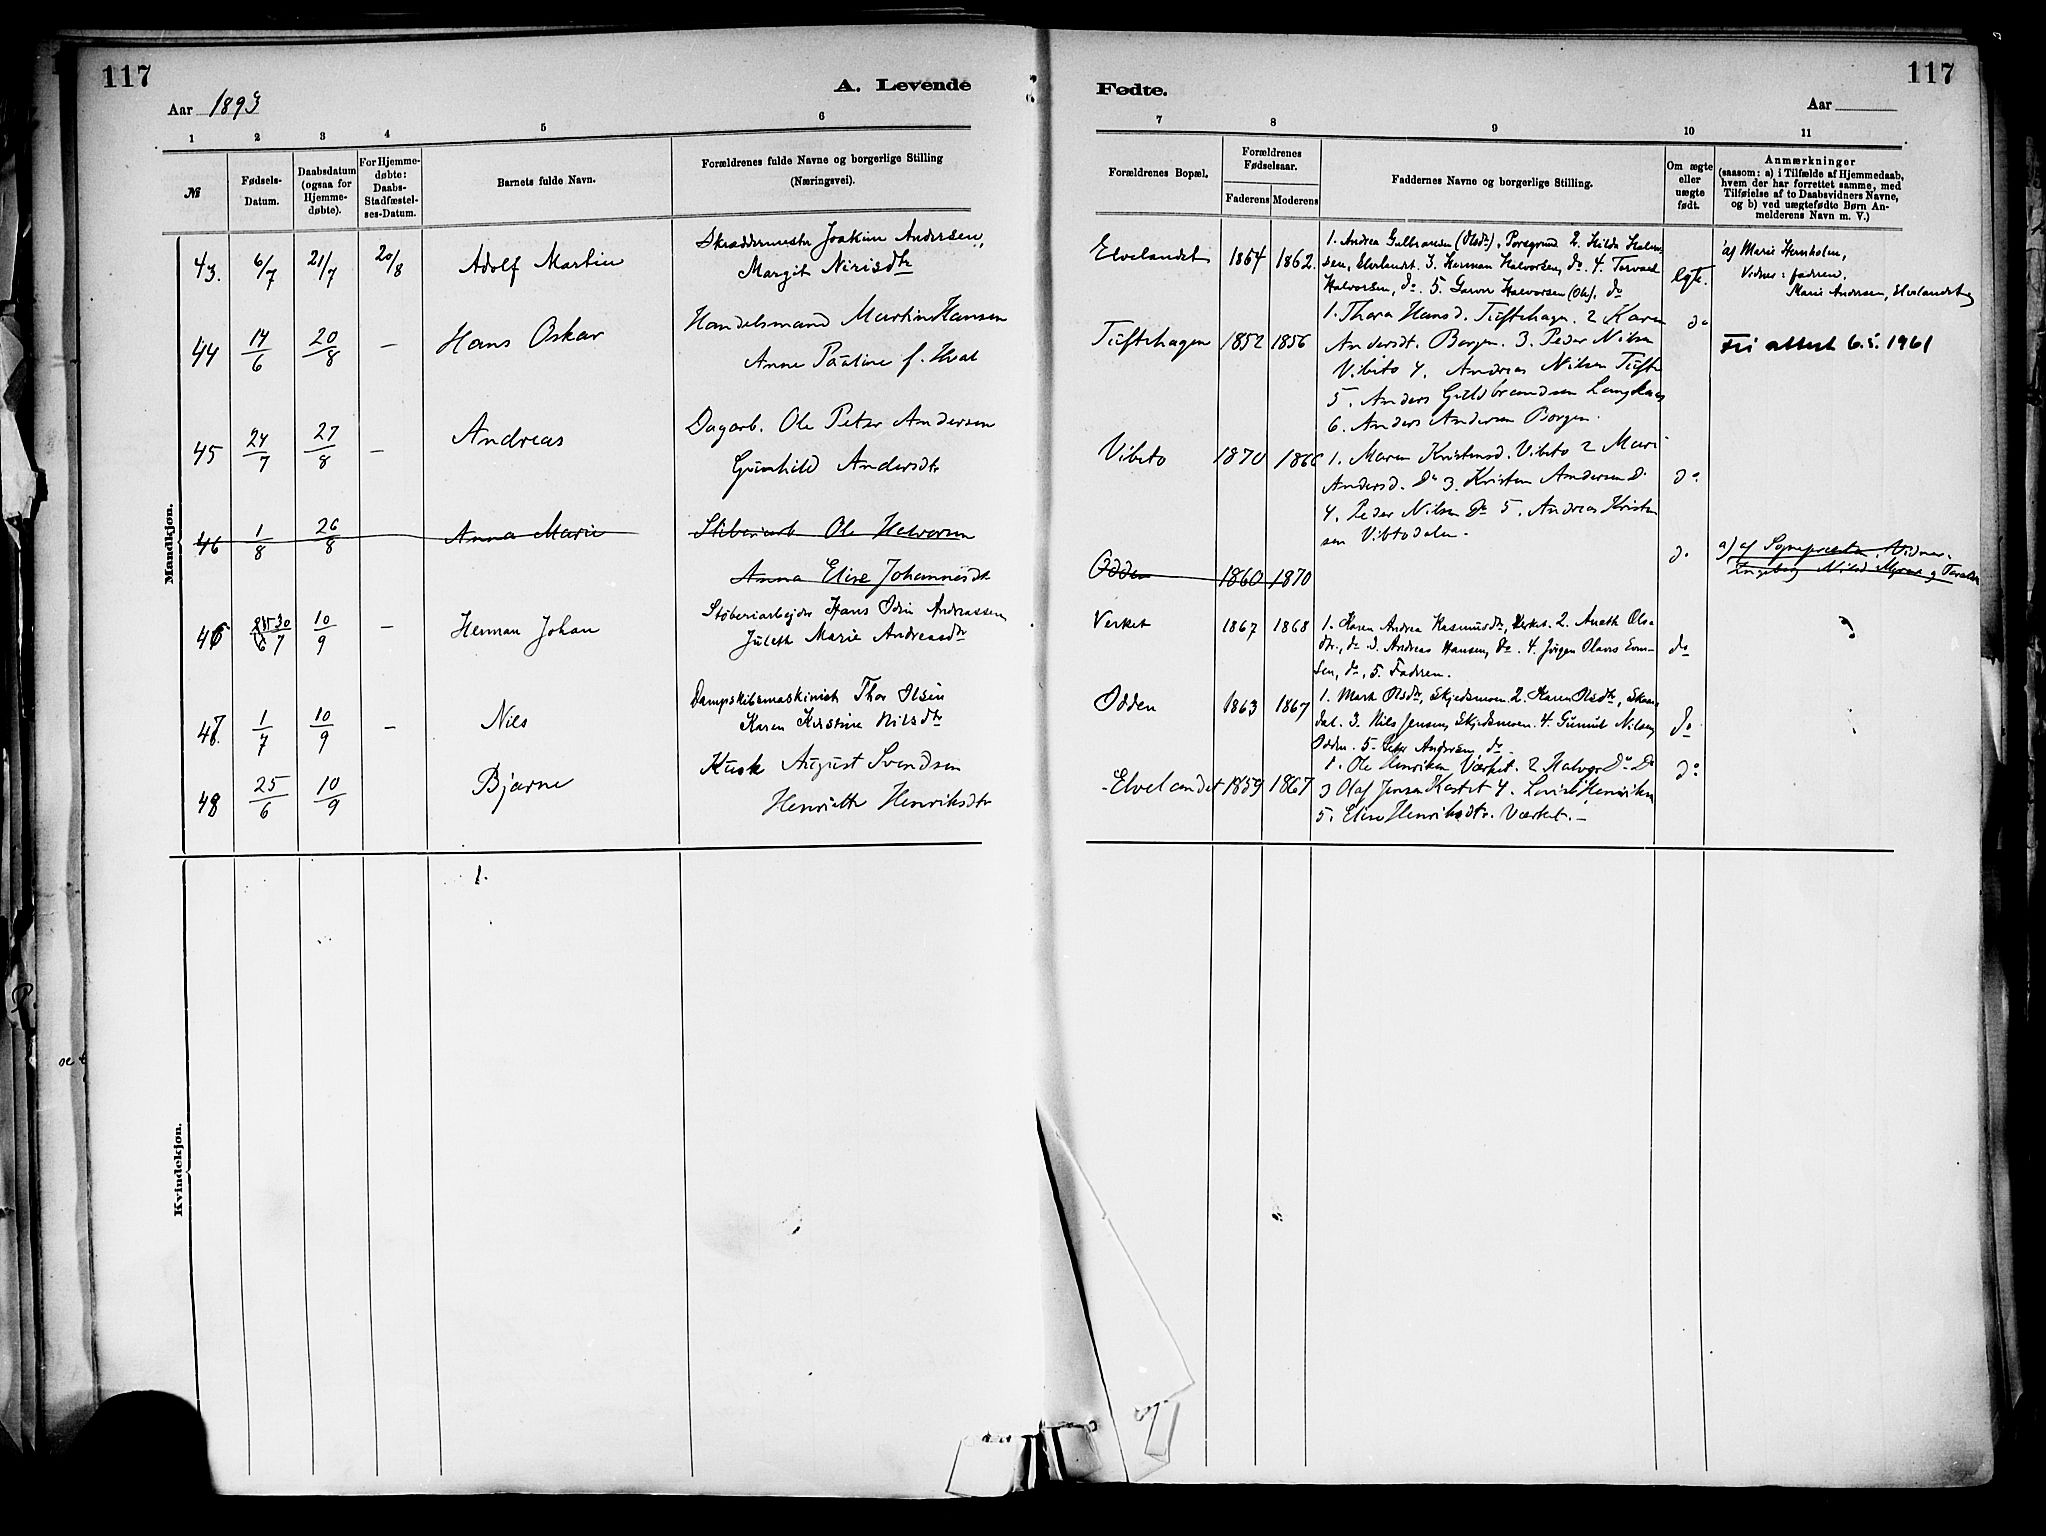 117
A. Levende
Aar 1893
1 2 3 4 5 6
№
Fødsels-
Datum.
Daabsdatum
(ogsaa for
Hjemme-
døbte).
For Hjemme-
døbte:
Daabs-
Stadfæstel-
ses-Datum.
Barnets fulde Navn.
Forældrenes fulde Navne og borgerlige Stilling
(Næringsvei).
Mandkjøn.
43. 6/7 21/7 20/8 Adolf Martin
Skræddermester Joakim Andersen,
Margit Nirisdtr
44 14/6 20/8 — Hans Oskar
Handelsmand Martin Hansen
Anne Pauline f. Hval
45 24/7 27/8 — Andreas
Dagarb. Ole Peter Andersen
Gunhild Andersdtr
46 1/8 26/8 Anna Marie
Støberiarb Ole Halvorsen
Anna Elise Johannesdtr
46 30/7 10/9 — Herman Johan
Støberiarbejder Hans Odin Andreassen
Juleth Marie Andreasdtr
47. 1/7 10/9 — Nils
Dampskibsmaskinist Thor Olsen
Karen Kirstine Nilsdtr
48 25/6 10/9 Bjarne
Kusk August Svendsen
Henriette Henriksdtr
Kvindekjøn.
1.
117
Fødte.
Aar
7 8 9 10 11
Forældrenes Bopæl.
Forældrenes
Fødselsaar.
Faderens Moderens
Faddernes Navne og borgerlige Stilling.
Om ægte
eller
uægte
født.
Anmærkninger
(saasom: a) i Tilfælde af Hjemmedaab,
hvem der har forrettet samme, med
Tilføielse af to Daabsvidners Navne,
og b) ved uægtefødte Børn An-
melderens Navn m. V.)
Elvelandet 1864 1862
1. Andrea Gulbransen (Olsdtr), Porsgrund 2. Hilda Halvor-
sen, Elvelandet. 3. Herman Halvorsen, do 4. Torvald
Halvorsen, do. 5. Halvorsen (Ols), do
Egte.
af Marie Hernholm,
Vidner: faderen,
Marie Andersen, Elvelandet
Tuftehagen 1852 1856
1. Thora Hansd. Tuftehagn. 2 Karen
Andersdt. Borgen. 3. Peder Nilsen
Vibito 4. Andreas Nilsen Tufte
5. Anders Guldbrandsen Langkaas
6. Anders Andersen Borgen.
do
Fri attest 6.5.1961
Vibito 1870 1866
1. Maren Kristensd. Vibito 2 Mari
Andersd. do 3. Kristen Andersen do
4. Peder Nilsen do 5. Andreas Kristen
sen Vibtodalen.
do
Odden 1860 1870
do
a) af Sognepræsten. Vidner.
Ingeborg Nilsd Myren og
Verket 1867 1868
1. Karen Andrea Rasmusdtr, Verket. 2. Aneth Ols-
dtr., do 3. Andreas Hansen, do. 4. Jørgen Olavs Evens-
sen, do, 5. Faderen.
do
Odden 1863 1867
1. Marth Olsdtr, Skjedsmoen. 2. Karen Olsdtr, Skaar-
dal. 3. Nils Jensen, Skjedsmoen. 4. Gunuld Nilsen,
Odden. 5. Peter Andersen, do
do
Elvelandet 1859 1867
1. Ole Henriksen Værket. 2 Halvor do do
3 Olaf Jensen Kastet 4. Lovise Henriksen
5. Elise Henriksdtr. Værket. —
do